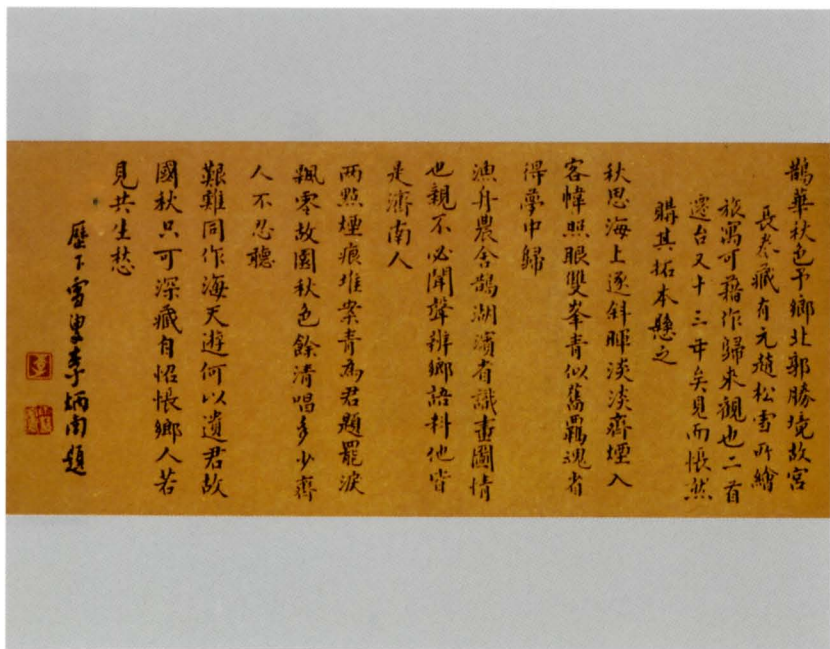 鵲華秋色予鄉北郭勝境故宮
長卷藏有元趙松雪所繪
旅寓可藉作歸來觀也二首
遷台又十三年矣見而悵然
購其拓本懸之
秋思海上逐斜暉淡淡齊煙入
客幃照眼雙峯青似舊羈魂省
得夢中歸
漁舟農舍鵲湖濱省識畫圖情
也親不必聞聲辨鄉語料他皆
是濟南人
兩點煙痕堆案青為君題罷淚
飄零故園秋色餘清唱多少齊
人不忍聽
艱難同作海天遊何以遺君故
國秋只可深藏自怊悵鄉人若
見共生愁
歷下雪叟李炳南題